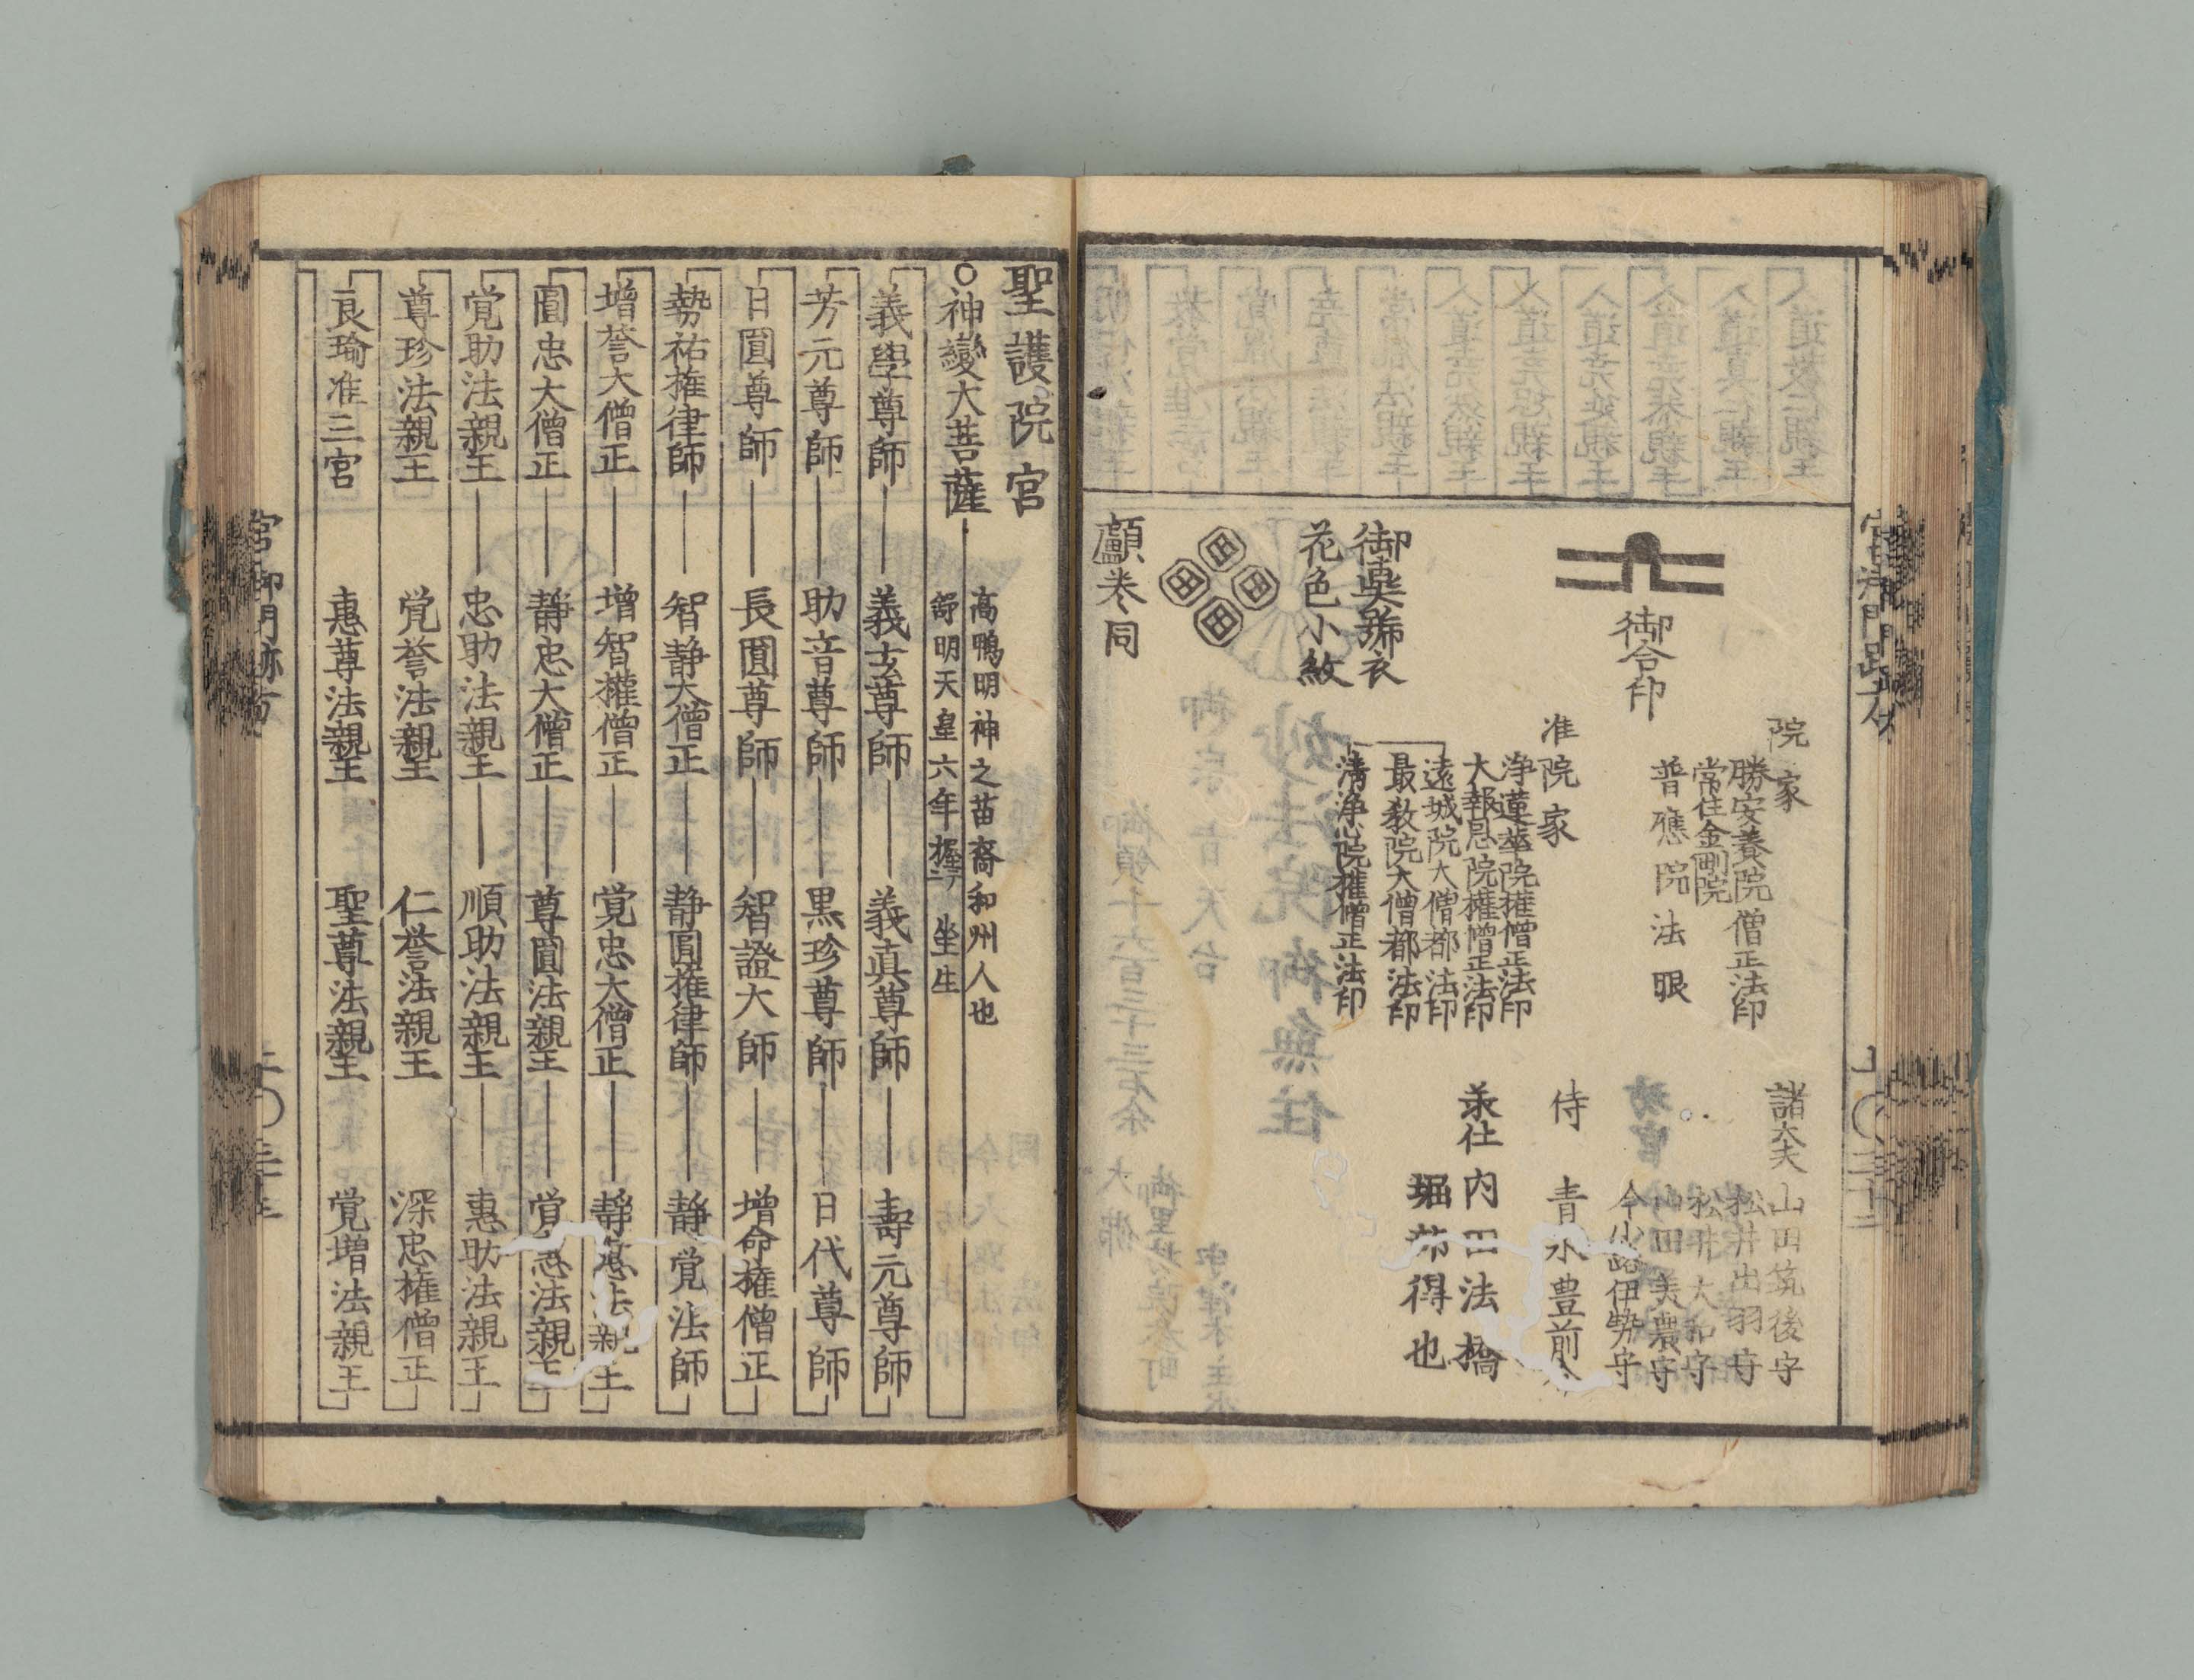 御合印
院家
勝安養院僧正法印
常住金剛院
普應院法眼
准院家
浄蓮華院権僧正法印
大報恩院権僧正法印
遠城院大僧都法印
最教院大僧都法印
清浄院権僧正法印
諸大夫
山田筑後守
松井出羽守
松井大和守
山田美濃守
今小路伊勢守
侍
青水豊前介
承仕
内田法橋
堀
得也
花色小紋
顱巻同
聖護院宮
○神變大菩薩
高鴨明神之苗裔和州人也
舒明天皇六年 坐生
義學尊師 義玄尊師 義眞尊師 壽元尊師
芳元尊師 助音尊師 黒珍尊師 日代尊師
日圓尊師 長圓尊師 智證大師 増命権僧正
勢祐権律師 智静大僧正 静圓権律師 静覚法師
増誉大僧正 増智権僧正 覚忠大僧正 静恵法親王
圓忠大僧正 静忠大僧正 尊圓法親王 覚恵法親王
覚助法親王 忠助法親王 順助法親王 惠助法親王
尊珍法親王 覚誉法親王 仁誉法親王 深忠権僧正
良瑜准三宮 惠尊法親王 聖尊法親王 覚増法親王
宮御門跡方